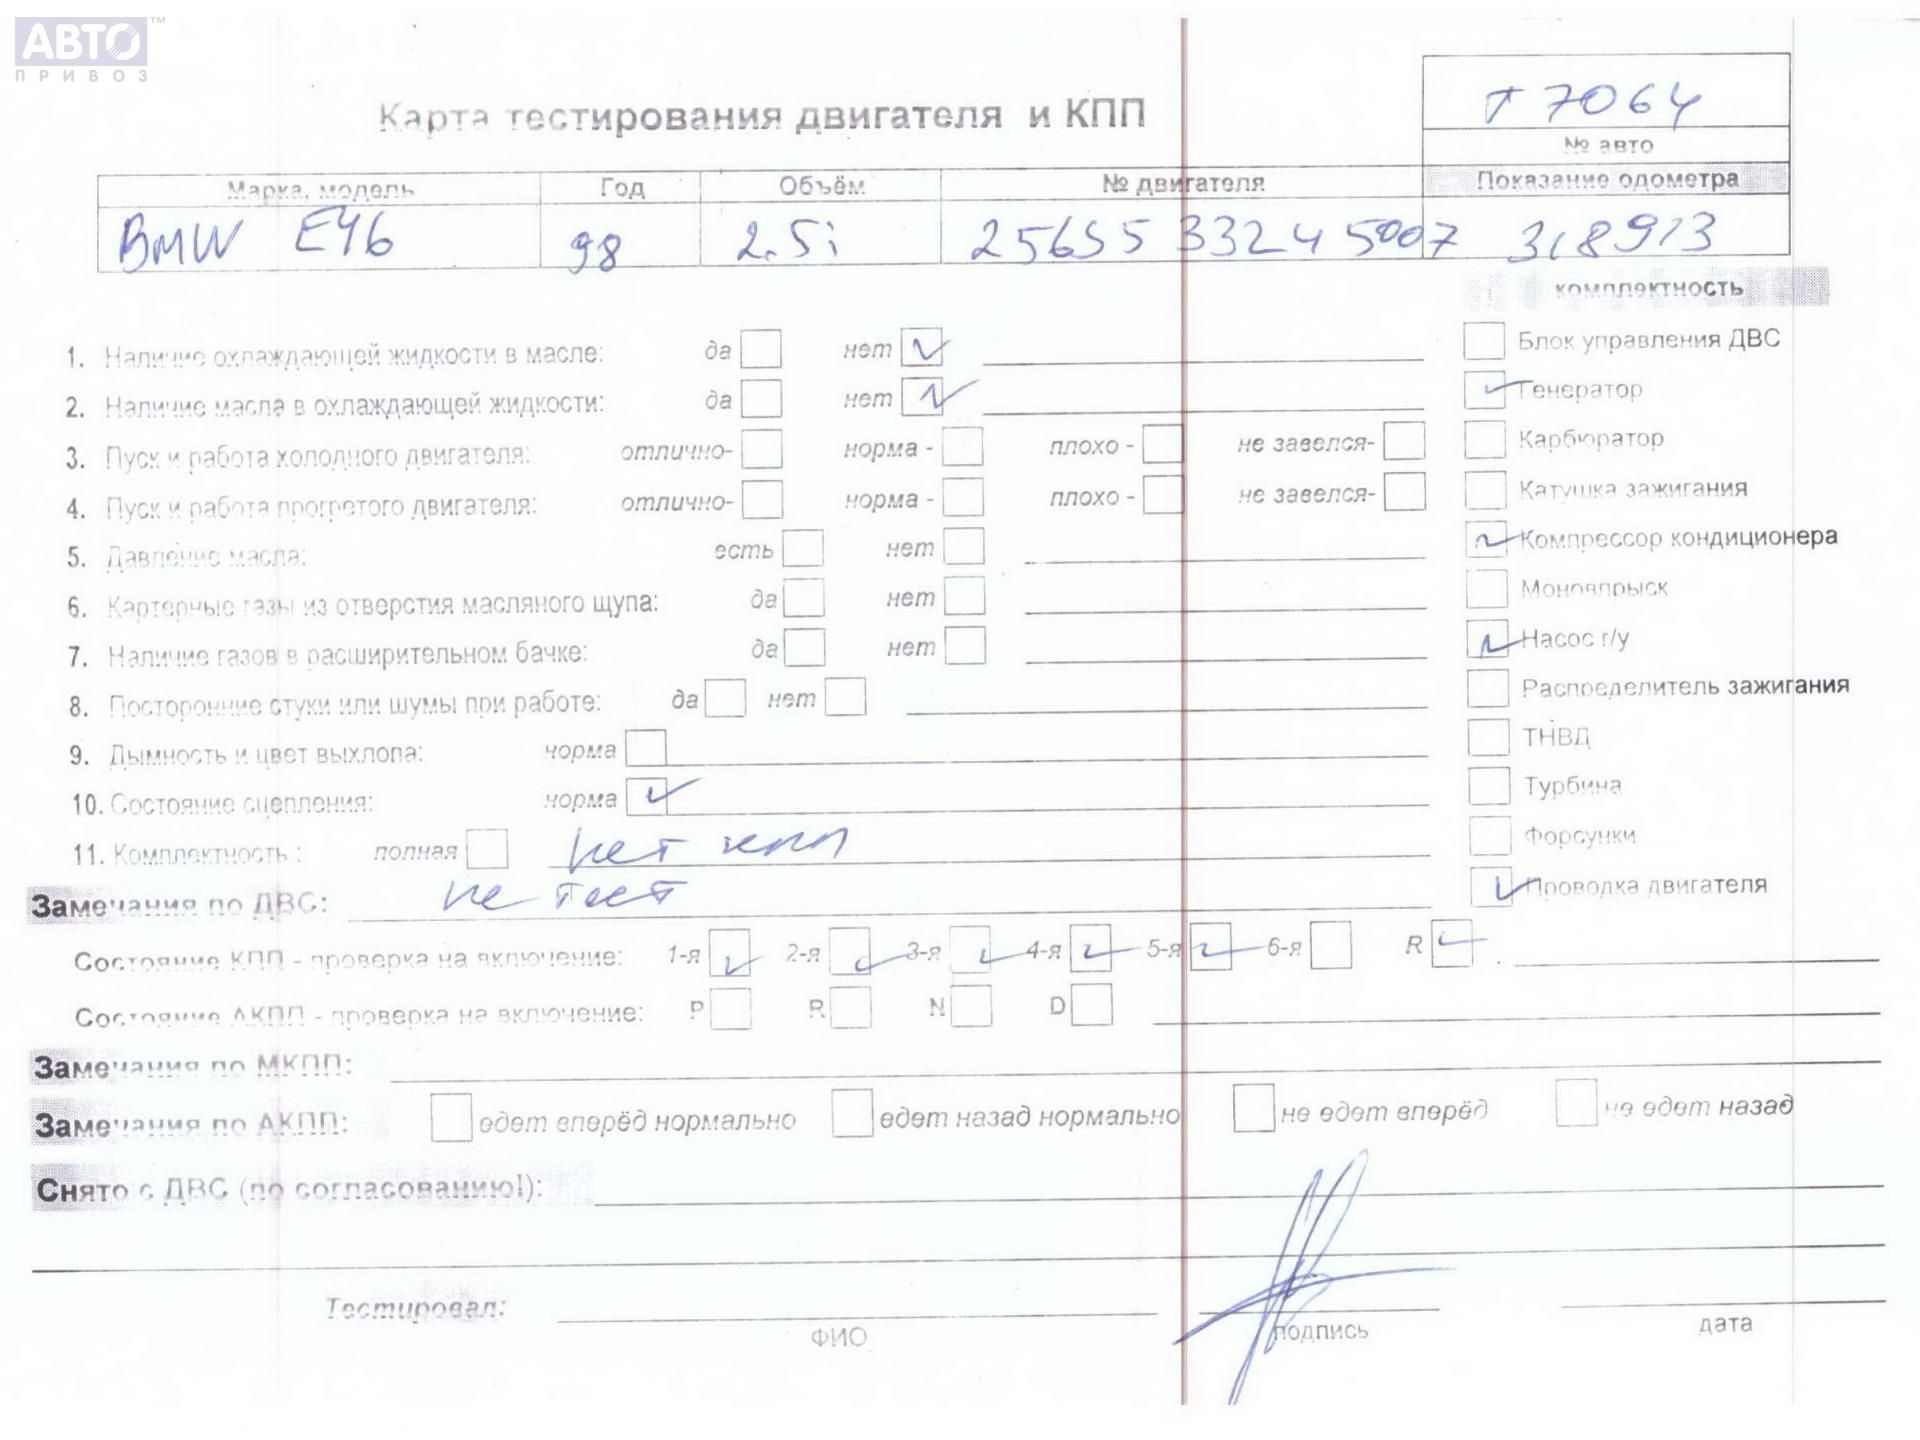 АВТО™
ПРИВОЗ
Карта тестирования двигателя и КПП
т 7064
№ авто
Марка, модель Год Объём № двигателя Показание одометра
BMW E46 98 2.5i 256S5 33245007 318913
комплектность
1. Наличие охлаждающей жидкости в масле: да нет
Блок управления ДВС
2. Наличие масла в охлаждающей жидкости: да нет
Генератор
3. Пуск и работа холодного двигателя: отлично- норма - плохо - не завелся-
Карбюратор
4. Пуск и работа прогретого двигателя: отлично- норма - плохо - не завелся-
Катушка зажигания
5. Давление масла: есть нет
Компрессор кондиционера
6. Картерные газы из отверстия масляного щупа: да нет
Моновпрыск
7. Наличие газов в расширительном бачке: да нет
Насос г/у
8. Посторонние стуки или шумы при работе: да нет
Распределитель зажигания
9. Дымность и цвет выхлопа: норма
ТНВД
10. Состояние сцепления: норма
Турбина
11. Комплектность : полная нет кпп
Форсунки
Замечания по ДВС: не тест
Проводка двигателя
Состояние КПП - проверка на включение: 1-я 2-я 3-я 4-я 5-я 6-я R
Состояние АКПП - проверка на включение: P R N D
Замечания по МКПП:
Замечания по АКПП: едет вперёд нормально едет назад нормально не едет вперёд не едет назад
Снято с ДВС (по согласованию!):
Тестировал:
ФИО подпись дата